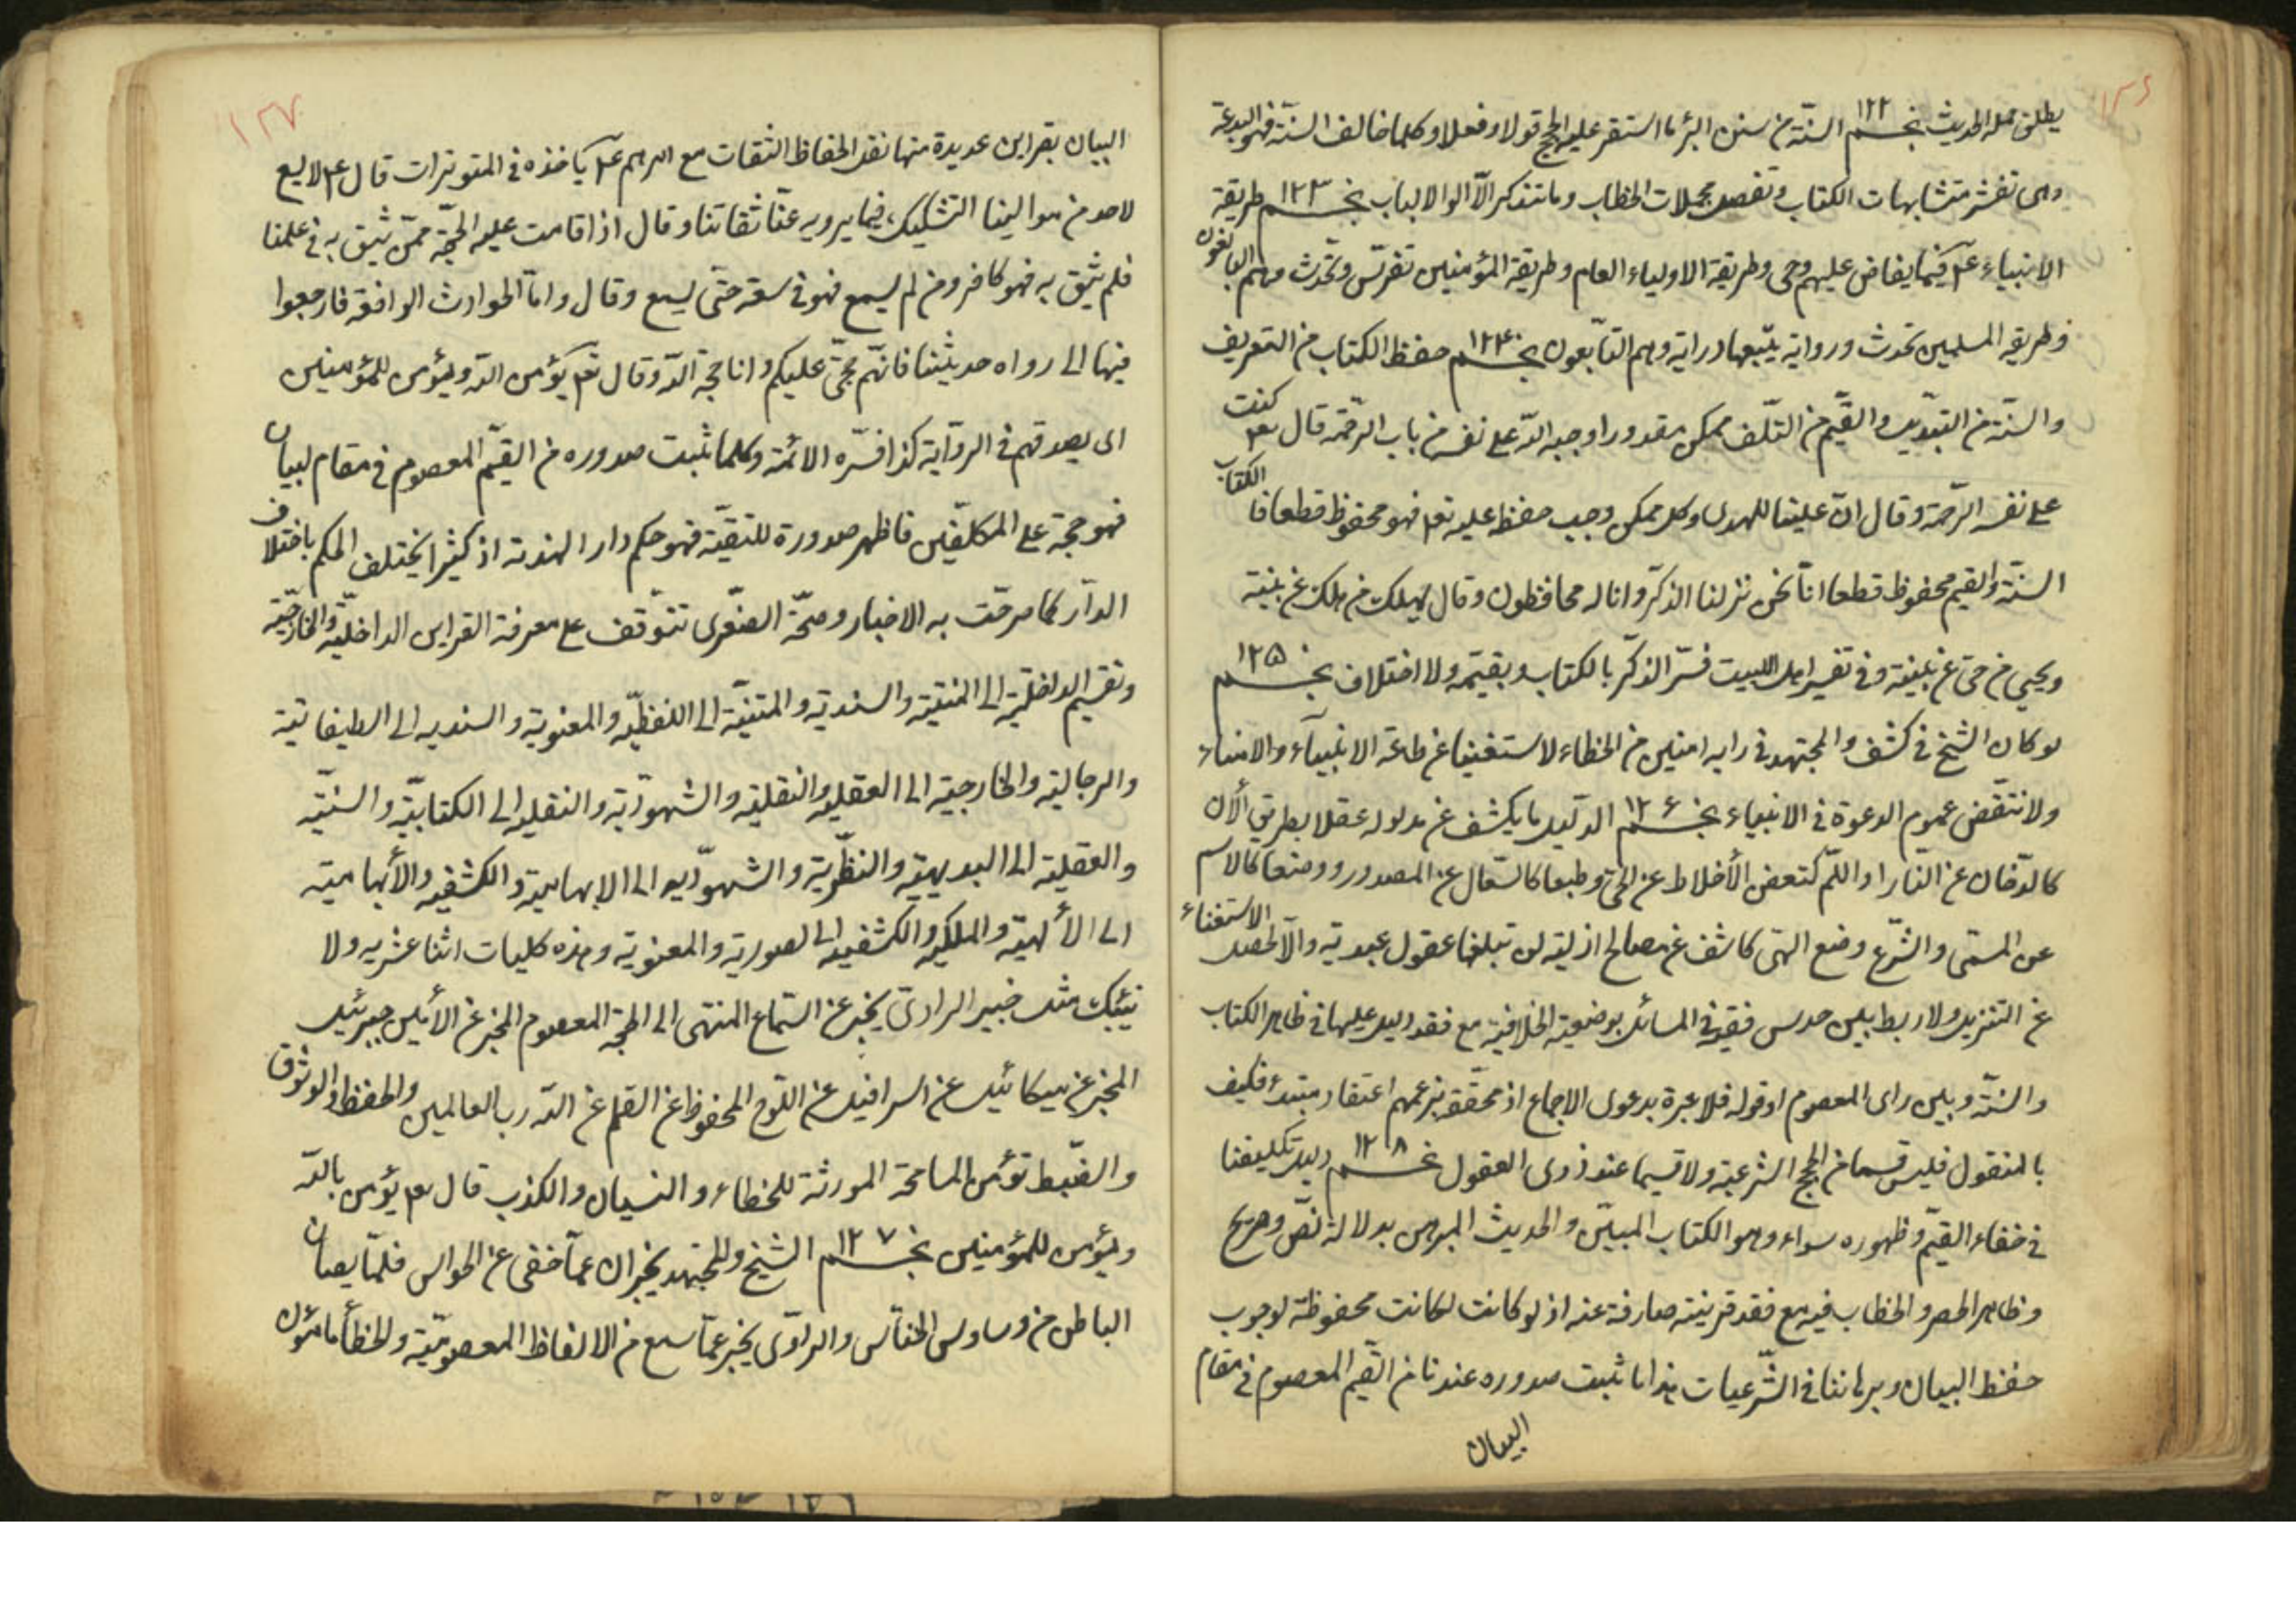 ١٢٦
يطلق عليه الحديث نجم ١٢٢ السنّة من سنن البئر ما استقر عليه الحجج قولا وفعلا وكلما خالف السنّة فهو البدعة
وهى تفسّر متشابهات الكتاب وتفصل مجملات الخطاب وما يتذكر الّا اولوا الالباب نجم ١٢٣ طريقة
الانبياء عم فيما يفاض عليهم وحى وطريقة الاولياء الهام وطريقة المؤمنين تفرّس وتحدّث وهم البالغون
وطريقه المسلمين تحدث ورواية يتبعها دراية وهم التّابعون نجم ١٢٤ حفظ الكتاب من التحريف
والسنّة من التبديل والقيّم من التّلف ممكن مقدور اوجبه اللّه على نفسه من باب الرّحمة قال تعم كتب
على نفسه الرّحمة وقال انّ علينا للهدى وكل ممكن وجب حفظه عليه تعم فهو محفوظ قطعا فا الكتاب
السنّة والقيم محفوظ قطعا انّا نحن نزلنا الذكر وانا له لحافظون وقال ليهلك من هلك عن بيّنة
ويحيى من حىّ عن بيّنة وفى تفسير اهل البيت فسّر الذكر بالكتاب وبقيّمه ولا اختلاف نجم ١٢٥
لو كان الشيخ فى كشفه والمجتهد فى رايه امنين من الخطاء لاستغنيا عن طاعة الانبيآء والامناء
ولانتقض عموم الدعوة فى الانبياء نجم ١٢٦ الدليل ما يكشف عن مدلوله عقلا بطريق الأن
كالدّخان عن النار او اللّم كتعفن الأخلاط عن الحمّى وطبعا كالسّعال عن المصدور ووضعا كالاسم
عن المسمّى والشّرع وضع الهى كاشف عن مصالح ازلية لن تبلغها عقول عبدية والّا لحصل الاستغناء
عن التنزيل ولا ربط بين حدس فقيه فى المسائل بوضعية الخلافية مع فقد دليل عليها فى ظاهر الكتاب
والسّنّة وبين راى المعصوم او قوله فلا عبرة بدعوى الاجماع اذ محققه بزعمهم اعتقاد مبتدء فكيف
بالمنقول فليس قسما من الحجج الشرعية ولا قسيما عند ذوى العقول نجم ١٢٨ دليل تكليفنا
فى خفاء القيّم وظهوره سواء وهو الكتاب المبيّن والحديث المبرهن بدلالة نصّ وصريح
وظاهر الحصر والخطاب فيه مع فقد قرينة صارفة عنه اذ لو كانت لكانت محفوظة لوجوب
حفظ البيان وبرهاننا فى الشّرعيات هذا ما ثبت صدوره عندنا من القيم المعصوم فى مقام
البيان
١٢٧
البيان بقراين عديدة منها نقد الحفاظ الثقات مع امرهم عم باخذه فى المتوترات قال عم لا يسع
لاحد من موالينا التشكيك فيما يرويه عنّا ثقاتنا وقال اذا قامت عليه الحجّة ممّن يثق به فى علمنا
فلم يثق به فهو كافر ومن لم يسمع فهو فى سعة حتّى يسمع وقال وامّا الحوادث الواقعة فارجعوا
فيها الى رواه حديثنا فانّهم حجّتى عليكم وانا حجة اللّه وقال تعم يؤمن باللّه ويؤمن للمؤمنين
اى يصدقهم فى الرواية كذا فسّره الائمّة وكلما ثبت صدوره من القيّم المعصوم فى مقام لبيان
فهو حجة على المكلّفين فاظهر صدورة للتقيّة فهو حكم دار الهدنة اذ كثيرا يختلف الحكم باختلاف
الدآر كما صرحّت به الاخبار وصحّة الصغّرى تتوّقف على معرفة القراين الداخليّة والخارجيّة
وتقسيم الداخلية الى المتنيّة والسندية والمتنيّة الى اللفظيّه والمعنوية والسنديه الى الطبقاتية
والرجالية والخارجية الى العقليه والنقلية والشهوديّة والنقليه الى الكتابيّة والسنيّة
والعقلية الى البديهية والنظريّة والشهودّيه الى الالهامية والكشفيه والألهامية
الى الألهيّة والملكيه والكشفيه الى الصورية والمعنوية وهذه كليات اثنا عشريه ولا
ينبئك مثل خبير الراوىّ يخبر عن السّماع المنتهى الى الحجة المعصوم المخبر عن الأمين جبرئيل
المخبر عن ميكائيل عن اسرافيل عن اللّوح المحفوظ عن القلم عن اللّه رب العالمين والحفظ والوثوق
والضّبط تؤمن المسامحة المورثة للخطاء والنسيان والكذب قال تعم يؤمن باللّه
ويؤمن للمؤمنين نجم ١٢٧ الشيخ والمجتهد يخبران عمّا خفى عن الحواس فلمّا يصان
الباطن من وساوس الخنّاس والراوّى يخبر عمّا سمع من الالفاظ المعصوميّة والخطأ مأمون